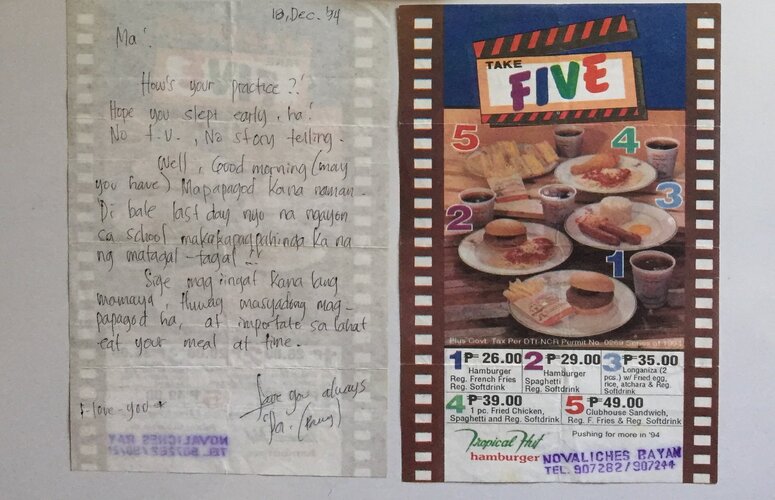 18, Dec. '94
Ma!
How's your practice?!
Hope you slept early, ha!
No t.v., No story telling.
Well, Good morning (may
you have) Mapapagod kana naman.
Di bale last day nyo na ngayon
sa school makakapagpahinga ka na
ng matagal-tagal!!
Sige mag iingat kana lang
mamaya, Huwag masyadong mag-
papagod ha, at importate sa lahat
eat your meal at time.
I-love-you
Love you always
Pa.
NOVALICHES BAYAN
TEL. 907282/907244
TAKE
FIVE
5
4
3
2
1
Plus Govt. Tax Per DTI-NCR Permit No. 0269 Series of 1994
1 ₱ 26.00
Hamburger
Reg. French Fries
Reg. Softdrink
2 ₱ 29.00
Hamburger
Spaghetti
Reg. Softdrink
3 ₱ 35.00
Longaniza (2
pcs.) w/ Fried egg,
rice, atchara & Reg.
Softdrink
4 ₱ 39.00
1 pc. Fried Chicken,
Spaghetti and Reg. Softdrink
5 ₱ 49.00
Clubhouse Sandwich,
Reg. F. Fries & Reg. Softdrink
Tropical Hut
hamburger
Pushing for more in '94
NOVALICHES BAYAN
TEL. 907282/907244